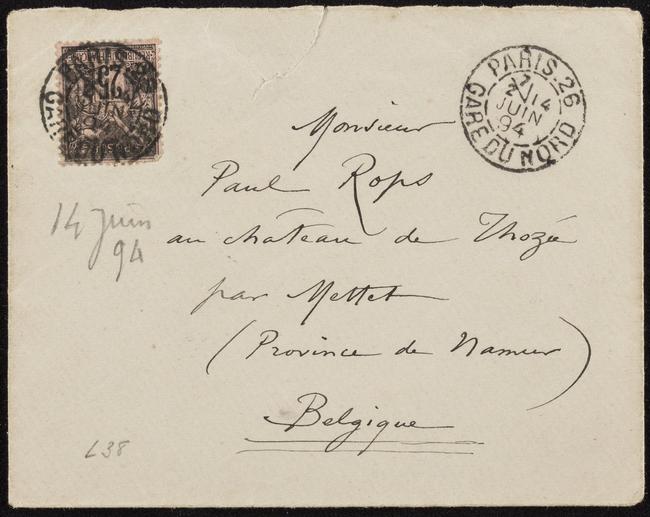 PARIS.26
7
2E 14
JUIN
94
GARE DU NORD
Monsieur
Paul Rops
au château de Thozée
par Mettet
(Province de Namur)
Belgique
14 Juin
94
L38